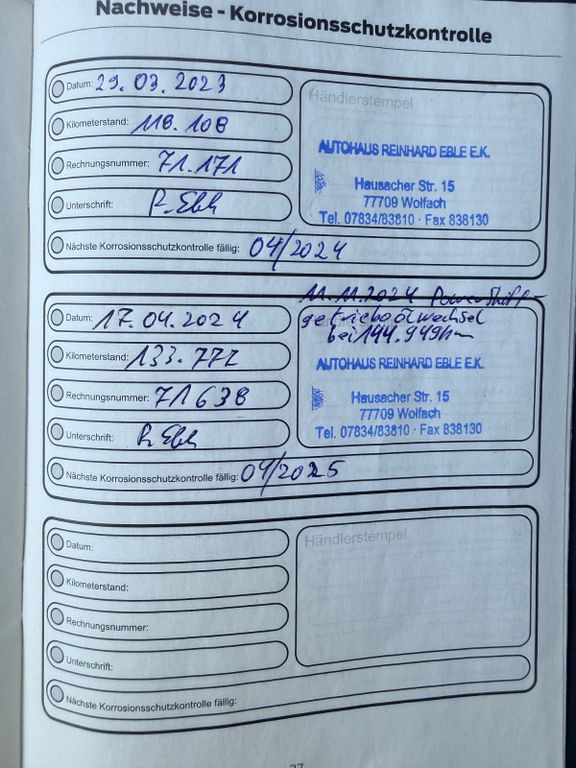 Nachweise - Korrosionsschutzkontrolle
Datum: 29.03.2023
Händlerstempel
Kilometerstand: 118.108
AUTOHAUS REINHARD EBLE E.K.
Rechnungsnummer: 71.171
Hausacher Str. 15
77709 Wolfach
Unterschrift: R. Eble
Tel. 07834/83810 · Fax 838130
Nächste Korrosionsschutzkontrolle fällig: 04/2024
11.11.2024 Powershift-
Datum: 17.04.2024
getriebeölwechsel
bei 144.949km
Kilometerstand: 133.772
AUTOHAUS REINHARD EBLE E.K.
Rechnungsnummer: 71638
Hausacher Str. 15
77709 Wolfach
Unterschrift: R. Eble
Tel. 07834/83810 · Fax 838130
Nächste Korrosionsschutzkontrolle fällig: 04/2025
Datum:
Händlerstempel
Kilometerstand:
Rechnungsnummer:
Unterschrift:
Nächste Korrosionsschutzkontrolle fällig: